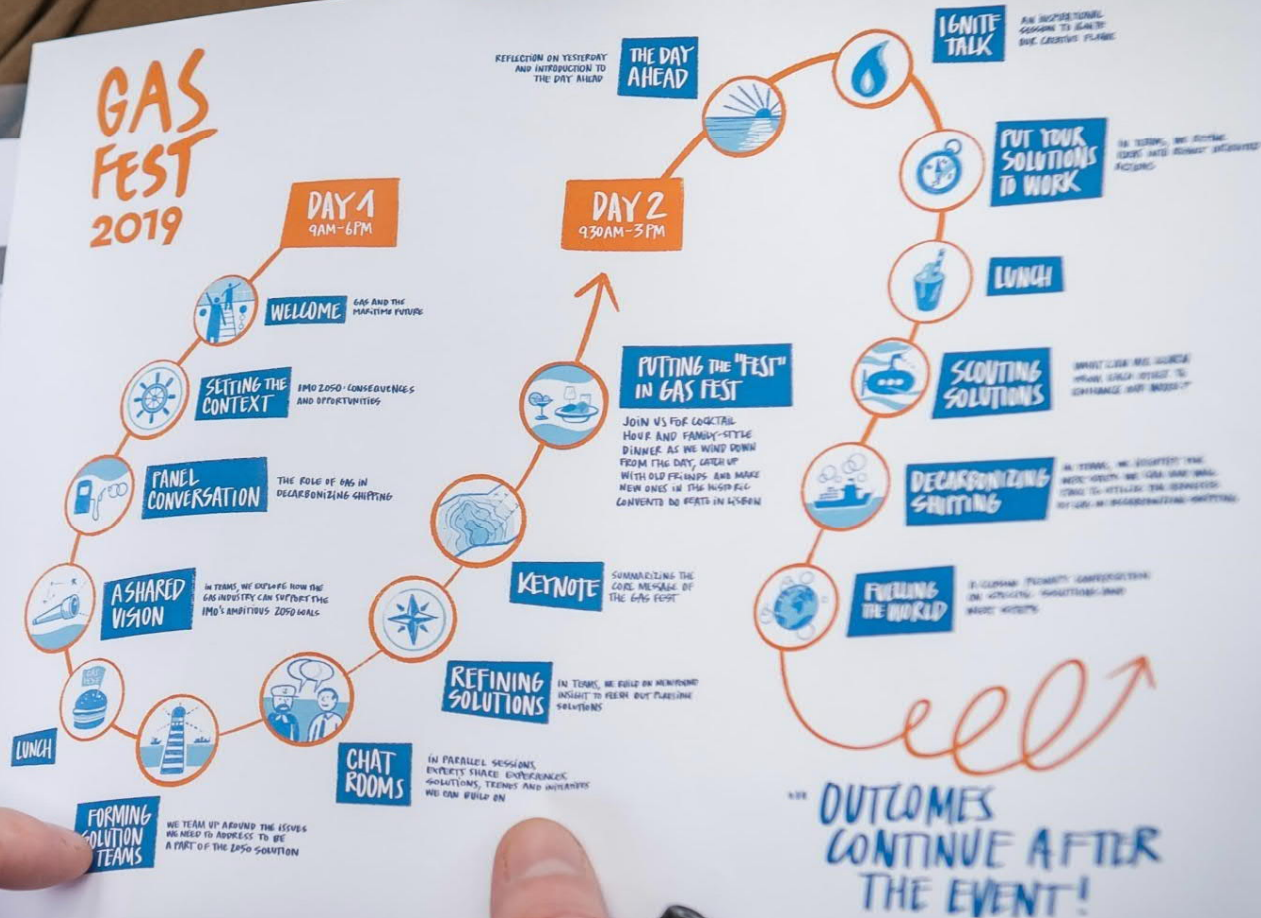 GAS
FEST
2019
DAY 1
9AM-6PM
WELCOME
GAS AND THE
MARITIME FUTURE
SETTING THE
CONTEXT
IMO 2050 · CONSEQUENCES
AND OPPORTUNITIES
PANEL
CONVERSATION
THE ROLE OF GAS IN
DECARBONIZING SHIPPING
A SHARED
VISION
IN TEAMS, WE EXPLORE HOW THE
GAS INDUSTRY CAN SUPPORT THE
IMO'S AMBITIOUS 2050 GOALS
GAS
FEST
LUNCH
FORMING
SOLUTION
TEAMS
WE TEAM UP AROUND THE ISSUES
WE NEED TO ADDRESS TO BE
A PART OF THE 2050 SOLUTION
CHAT
ROOMS
IN PARALLEL SESSIONS,
EXPERTS SHARE EXPERIENCES
SOLUTIONS, TRENDS AND INITIATIVES
WE CAN BUILD ON
REFINING
SOLUTIONS
IN TEAMS, WE BUILD ON NEWFOUND
INSIGHT TO FLESH OUT PLAUSIBLE
SOLUTIONS
KEYNOTE
SUMMARIZING THE
CORE MESSAGE OF
THE GAS FEST
PUTTING THE "FEST"
IN GAS FEST
JOIN US FOR COCKTAIL
HOUR AND FAMILY-STYLE
DINNER AS WE WIND DOWN
FROM THE DAY, CATCH UP
WITH OLD FRIENDS AND MAKE
NEW ONES IN THE HISTORIC
CONVENTO DO BEATO IN LISBON
DAY 2
930AM-3PM
THE DAY
AHEAD
REFLECTION ON YESTERDAY
AND INTRODUCTION TO
THE DAY AHEAD
IGNITE
TALK
AN INSPIRATIONAL
SESSION TO IGNITE
OUR CREATIVE FLAME
PUT YOUR
SOLUTIONS
TO WORK
IN TEAMS, WE
ACTIONS
LUNCH
SCOUTING
SOLUTIONS
WHAT CAN WE LEARN
FROM EACH OTHER TO
ENHANCE OUR IMPACT?
DECARBONIZING
SHIPPING
IN TEAMS, WE IDENTIFY THE
FUELLING
THE WORLD
A CLOSING PLENARY CONVERSATION
NEXT STEPS
OUTCOMES
CONTINUE AFTER
THE EVENT!